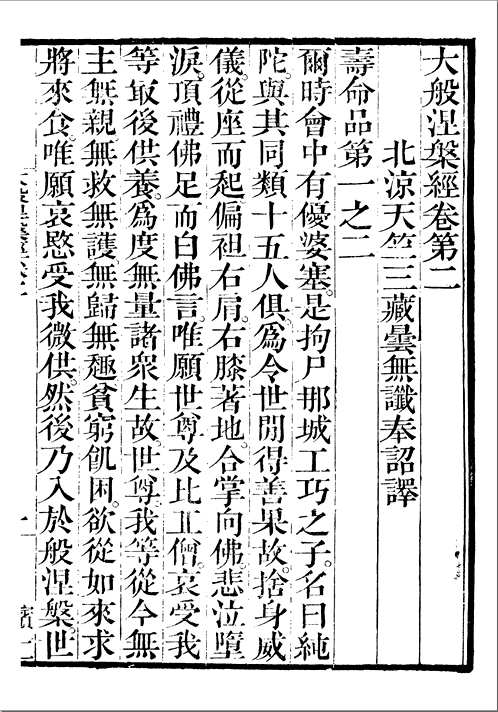 大般涅槃經卷第二
北涼天竺三藏曇無讖奉詔譯
壽命品第一之二
爾時會中有優婆塞。是拘尸那城工巧之子。名曰純
陀。與其同類十五人俱。爲令世閒得善果故。捨身威
儀。從座而起。偏袒右肩。右膝著地。合掌向佛。悲泣墮
淚。頂禮佛足。而白佛言。唯願世尊及比丘僧。哀受我
等最後供養。爲度無量諸眾生故。世尊。我等從今無
主無親無救無護無歸無趣。貧窮飢困。欲從如來求
將來食。唯願哀愍受我微供。然後乃入於般涅槃。世